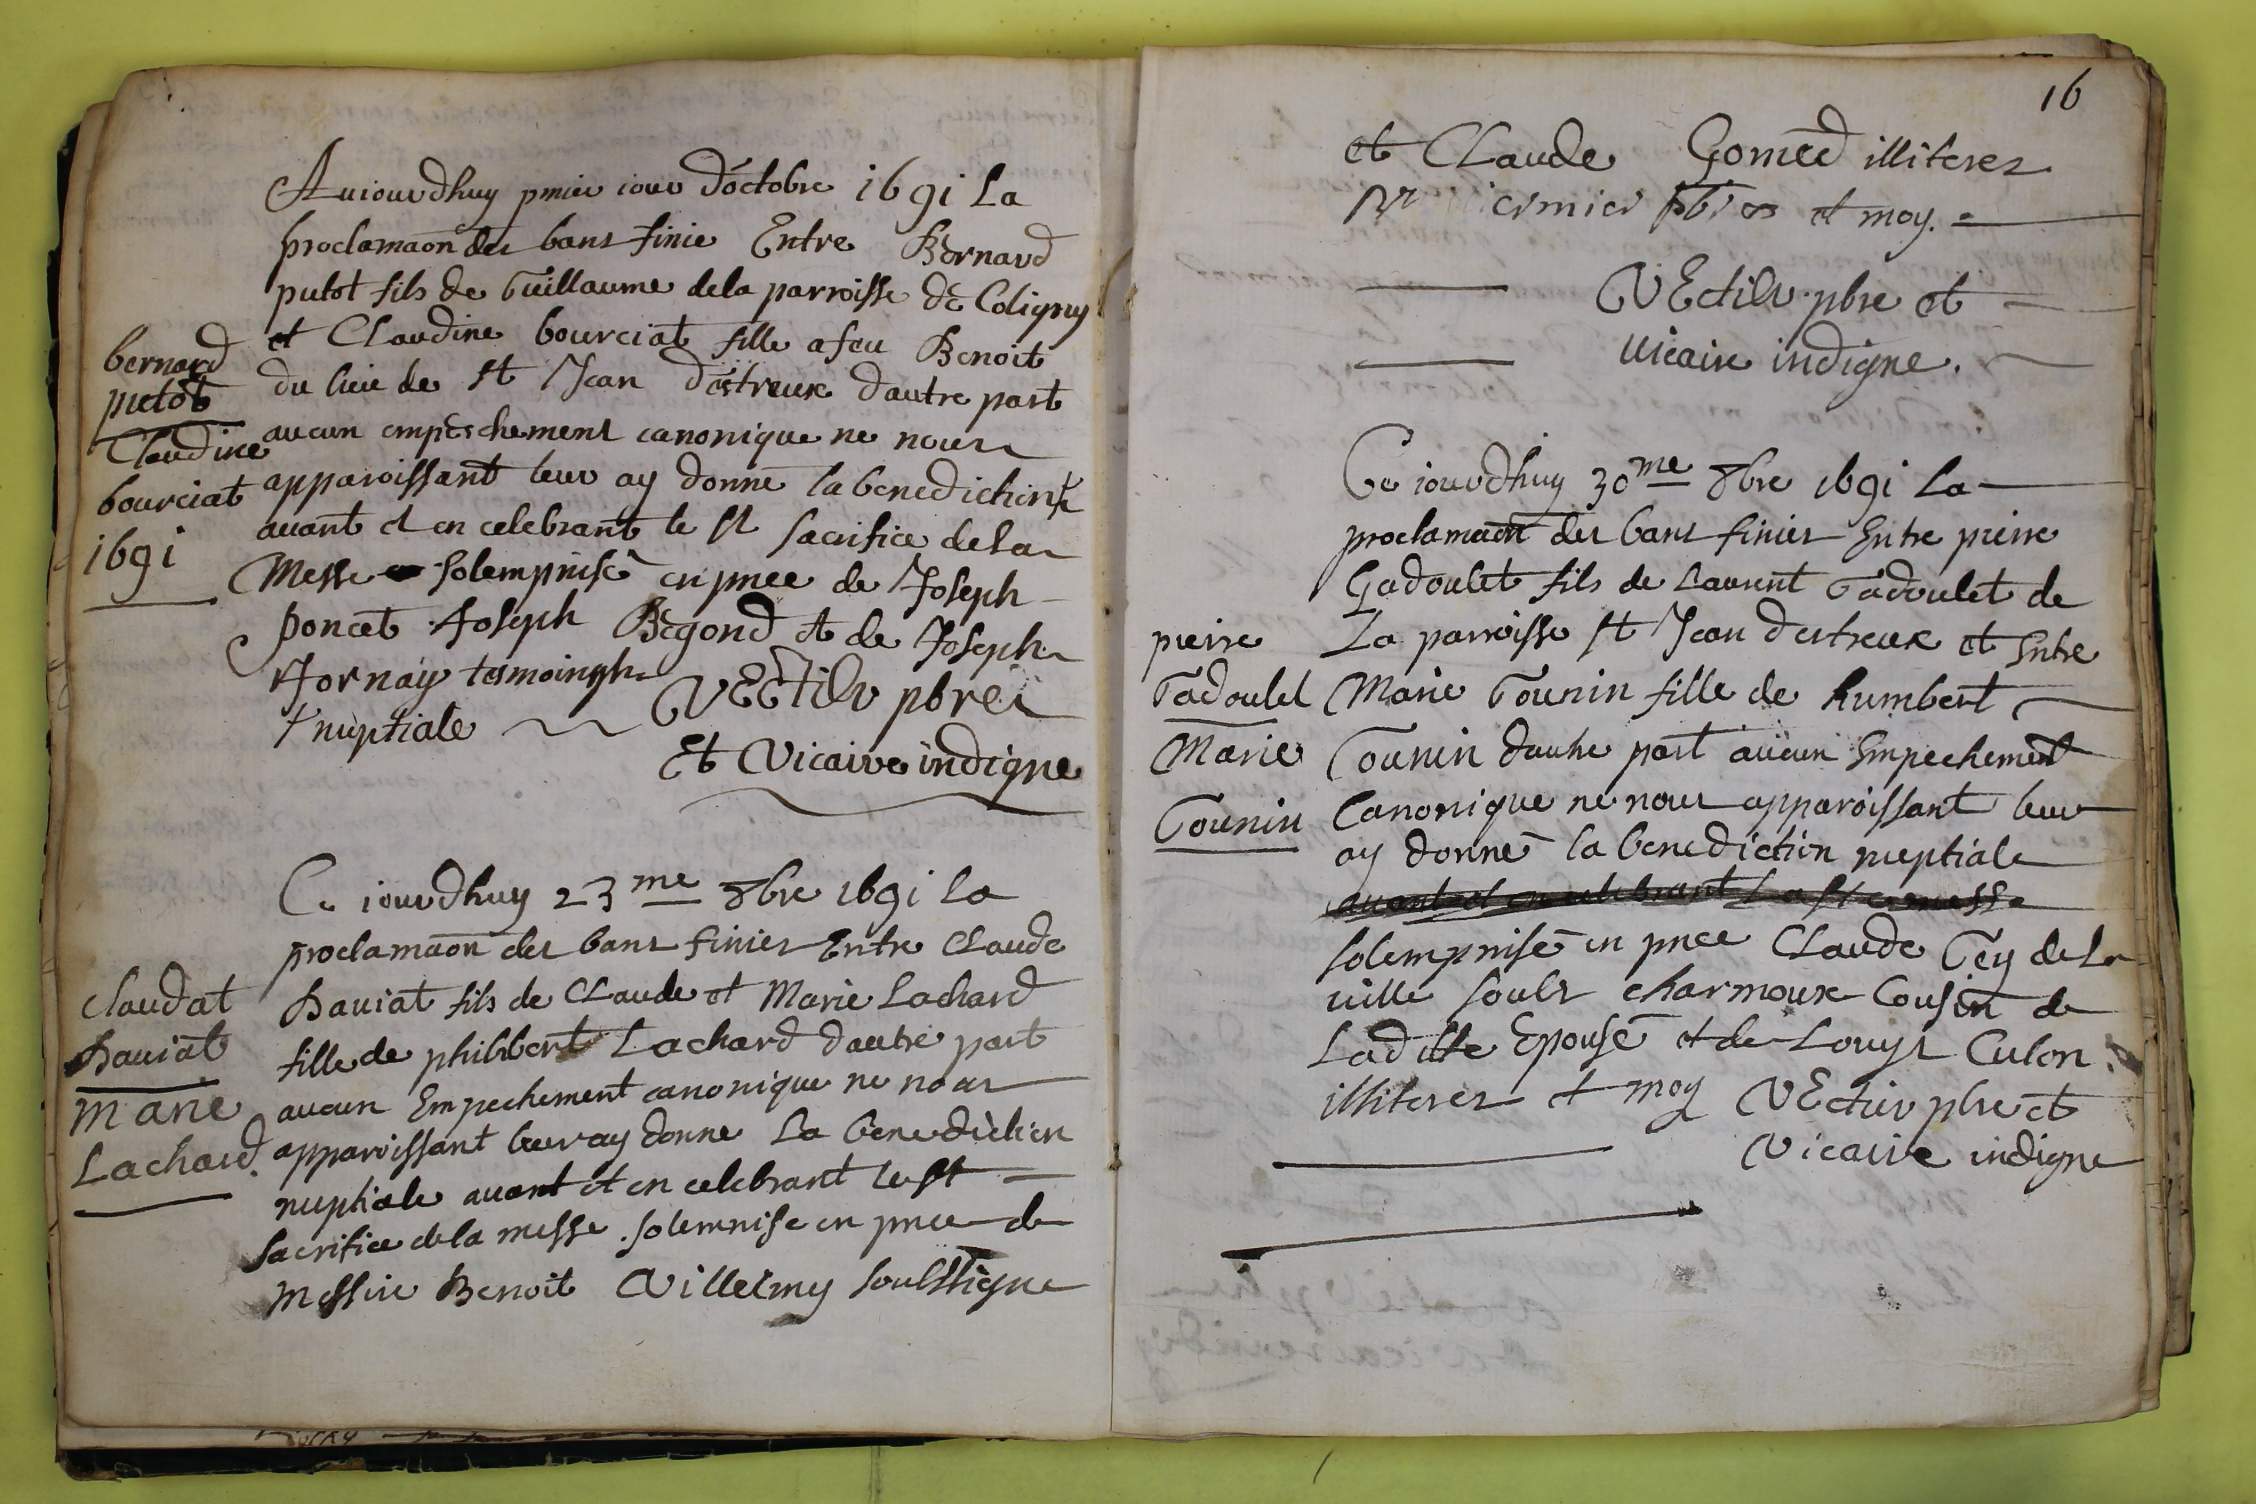 Auiourdhuy pmier iour d'octobre 1691 La
proclamaon des bans finie Entre Bernard
putot fils de Guillaume dela parroisse de Coligny
et Claudine bourciat fille a feu Benoit
du lieu de St Jean destreux dautre part
aucun empeschement canonique ne nous
apparoissant leur ay donné la benediction +
auant et en celebrant le St sacrifice dela
Messe solempnisé en pnce de Joseph
poncet Joseph Begond et de Joseph
Jornay tesmoingh
+ nuptiale VEctilr pbre
Et Vicaire indigne
bernard
putot
Claudine
bourciat
1691
Ce iourdhuy 23me 8bre 1691 la
proclamaon des bans finies Entre Claude
Dauiat fils de CLaude et Marie Lachard
fille de philibert Lachard dautre part
aucun Empechement canonique ne nous
apparoissant leur ay donne La benediction
nuptiale auant et en celebrant le St
sacrifice de la messe solemnise en pnce de
Messire Benoit Villermy soulssigne
Claudat
Dauiat
Marie
Lachard
16
et CLaude Gomed illiteres
et moy.
VEctilr pbre et
Uicaire indigne.
Ce iourdhuy 30me 8bre 1691 La
proclamaon des bans finies Entre pierre
Gadoulet fils de Laurent Gadoulet de
La parroisse St Jean destreux et Entre
Marie Gounin fille de humbert
Gounin dautre part aucun Empechement
Canonique ne nous apparoissant leur
ay donné la benediction nuptiale
auant et en celebrant La Ste messe
solempnisé en pnce CLaude Gey de La
uille soubs charmoux Cousin de
Laditte Epouse et de Louys Culon
illiteres et moy VEctilr pbre et
Vicaire indigne
pierre
Gadoulet
Marie
Gounin